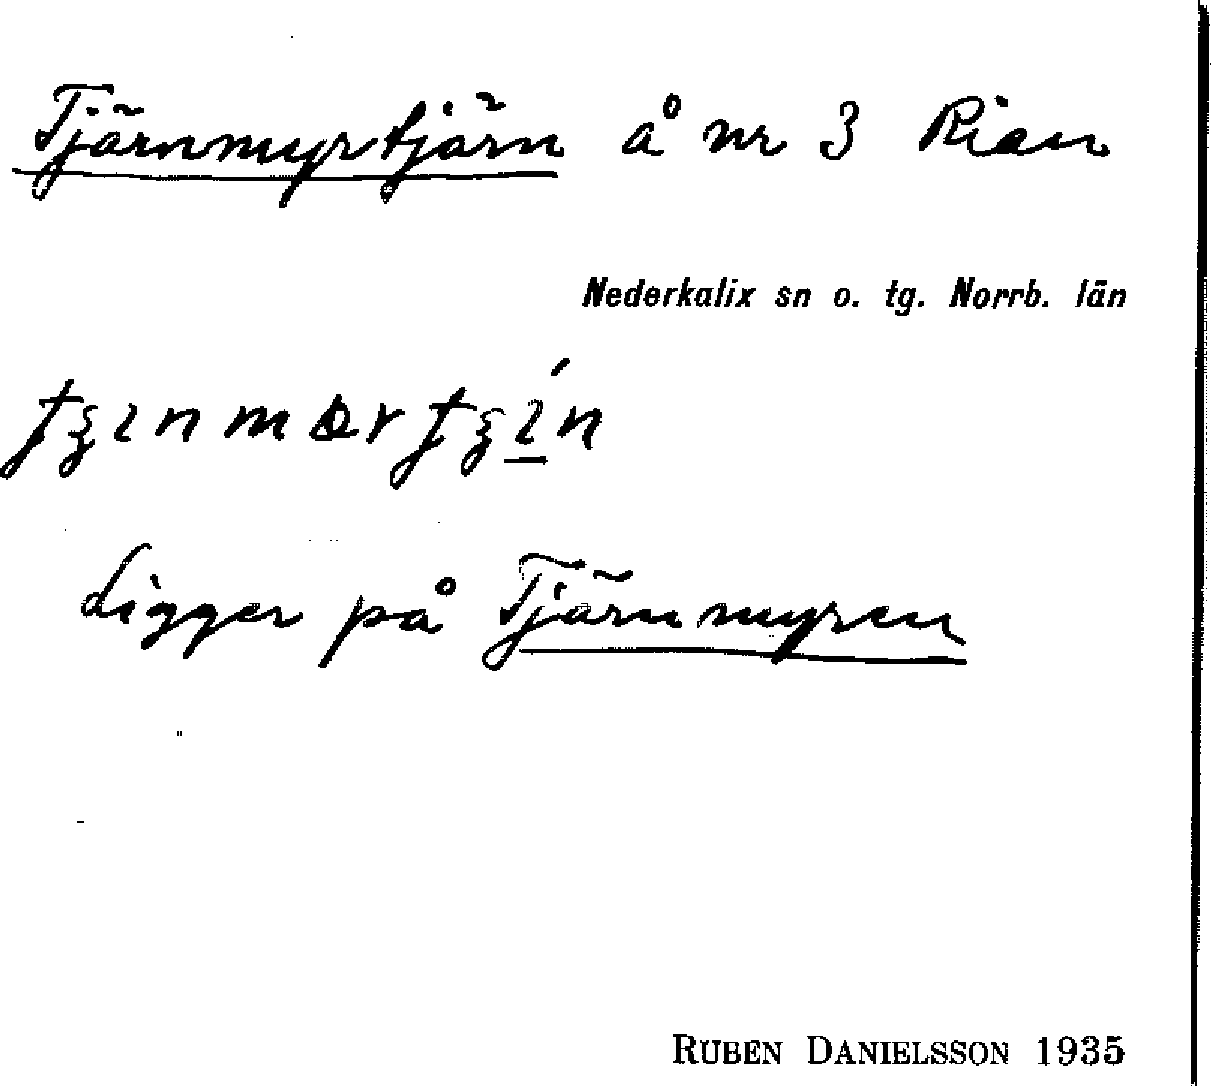 Tjärnmyrtjärn å nr 3 Rian
Nederkalix sn o. tg. Norrb. län
Ligger på Tjärnmyren
RUBEN DANIELSSON 1935